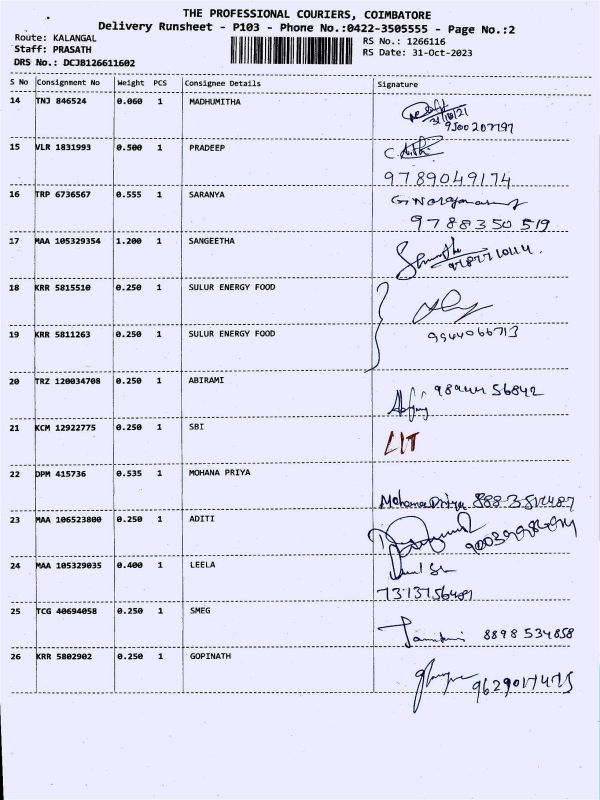 THE PROFESSIONAL COURIERS, COIMBATORE
Delivery Runsheet - P103 - Phone No.:0422-3505555 - Page No.:2
Route: KALANGAL
Staff: PRASATH
DRS No.: DCJB126611602
RS No.: 1266116
RS Date: 31-Oct-2023
S No Consignment No Weight PCS Consignee Details Signature
14 TNJ 846524 0.060 1 MADHUMITHA
31/10/21
9500207797
15 VLR 1831993 0.500 1 PRADEEP
9789049174
16 TRP 6736567 0.555 1 SARANYA
9788350 519
17 MAA 105329354 1.200 1 SANGEETHA
18 KRR 5815510 0.250 1 SULUR ENERGY FOOD
19 KRR 5811263 0.250 1 SULUR ENERGY FOOD
9944066713
20 TRZ 120034708 0.250 1 ABIRAMI
989444 56842
21 KCM 12922775 0.250 1 SBI
LIT
22 DPM 415736 0.535 1 MOHANA PRIYA
Mohana Priya
23 MAA 106523800 0.250 1 ADITI
24 MAA 105329035 0.400 1 LEELA
25 TCG 40694058 0.250 1 SMEG
8898 534858
26 KRR 5802902 0.250 1 GOPINATH
9629017475